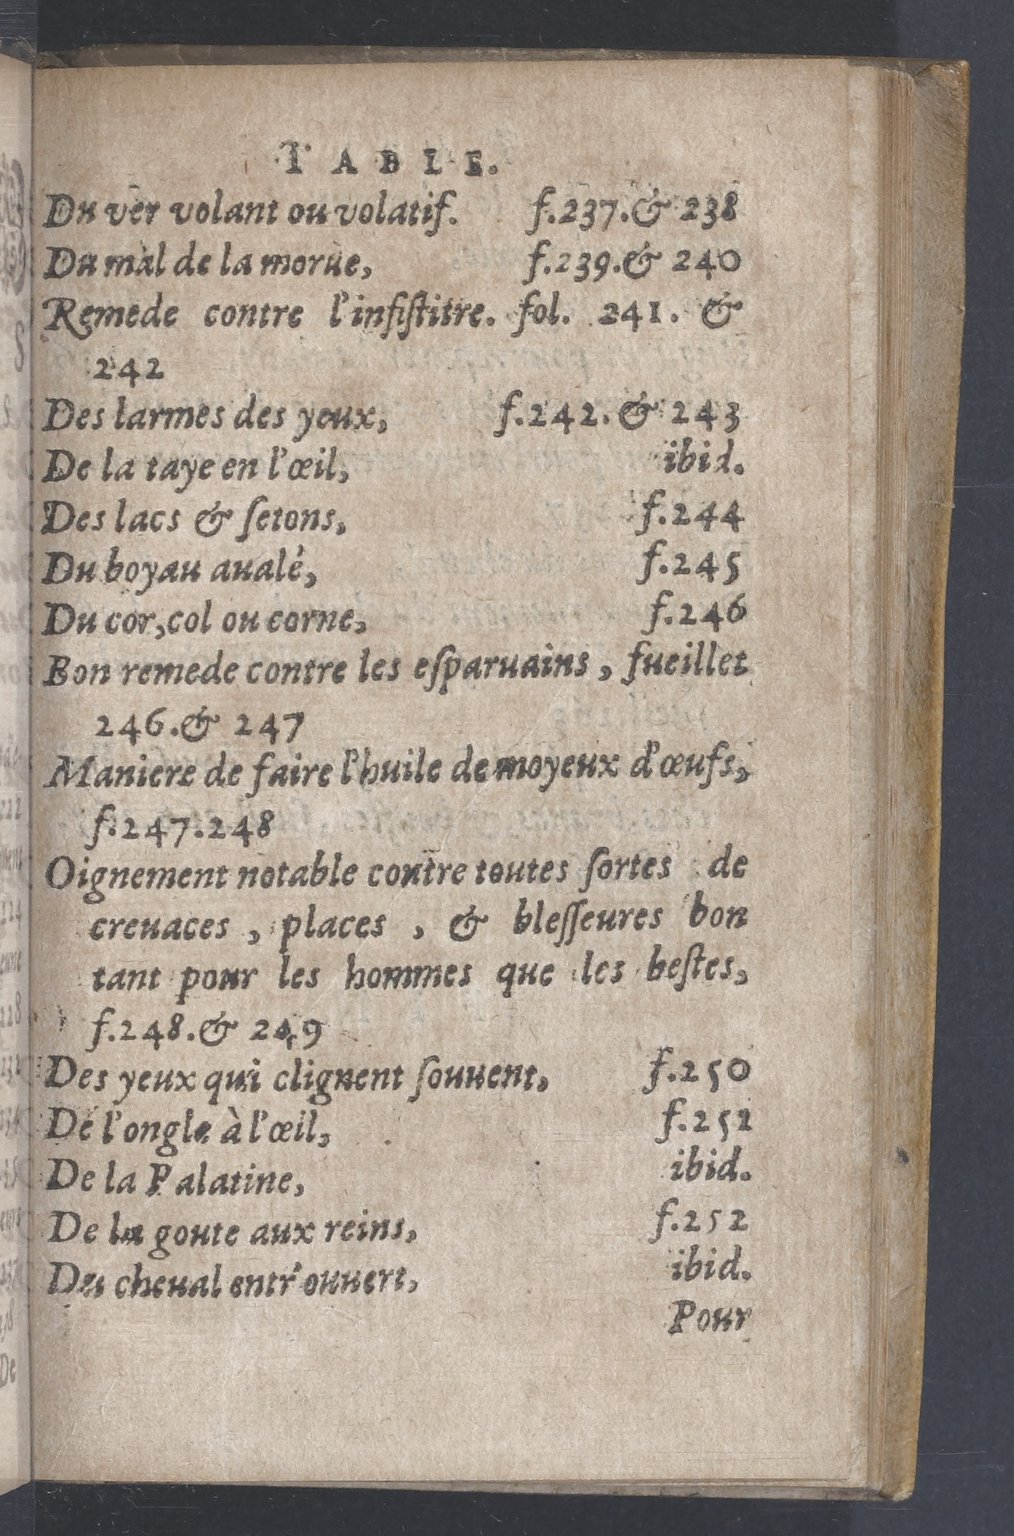 TABLE.
Du ver volant ou volatif. f.237.& 238
Du mal de la morue, f.239.& 240
Remede contre l'infiſtitre. fol. 241. &
242
Des larmes des yeux, f.242. & 243
De la taye en l'œil, ibid.
Des lacs & ſetons, f.244
Du boyau aualé, f.245
Du cor, col ou corne, f.246
Bon remede contre les eſparuains, fueillet
246.& 247
Maniere de faire l'huile de moyeux d'œufs,
f.247.248
Oignement notable contre toutes ſortes de
creuaces, places, & bleſſeures bon
tant pour les hommes que les beſtes,
f.248.& 249
Des yeux qui clignent ſouuent, f.250
De l'ongle à l'œil, f.252
De la Palatine, ibid.
De la goute aux reins, f.252
Du cheual entr'ouuert, ibid.
Pour